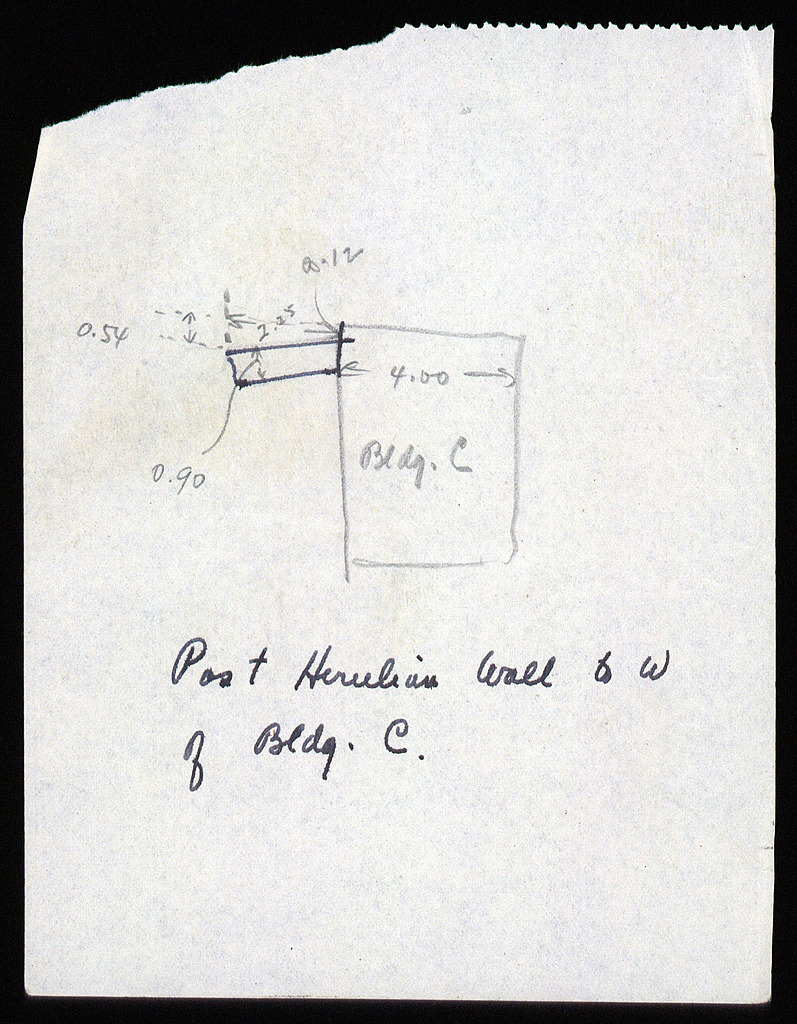 0.12
0.54
2.25
4.00
Bldg. C
0.90
Post Herulian Wall to W
of Bldg. C.